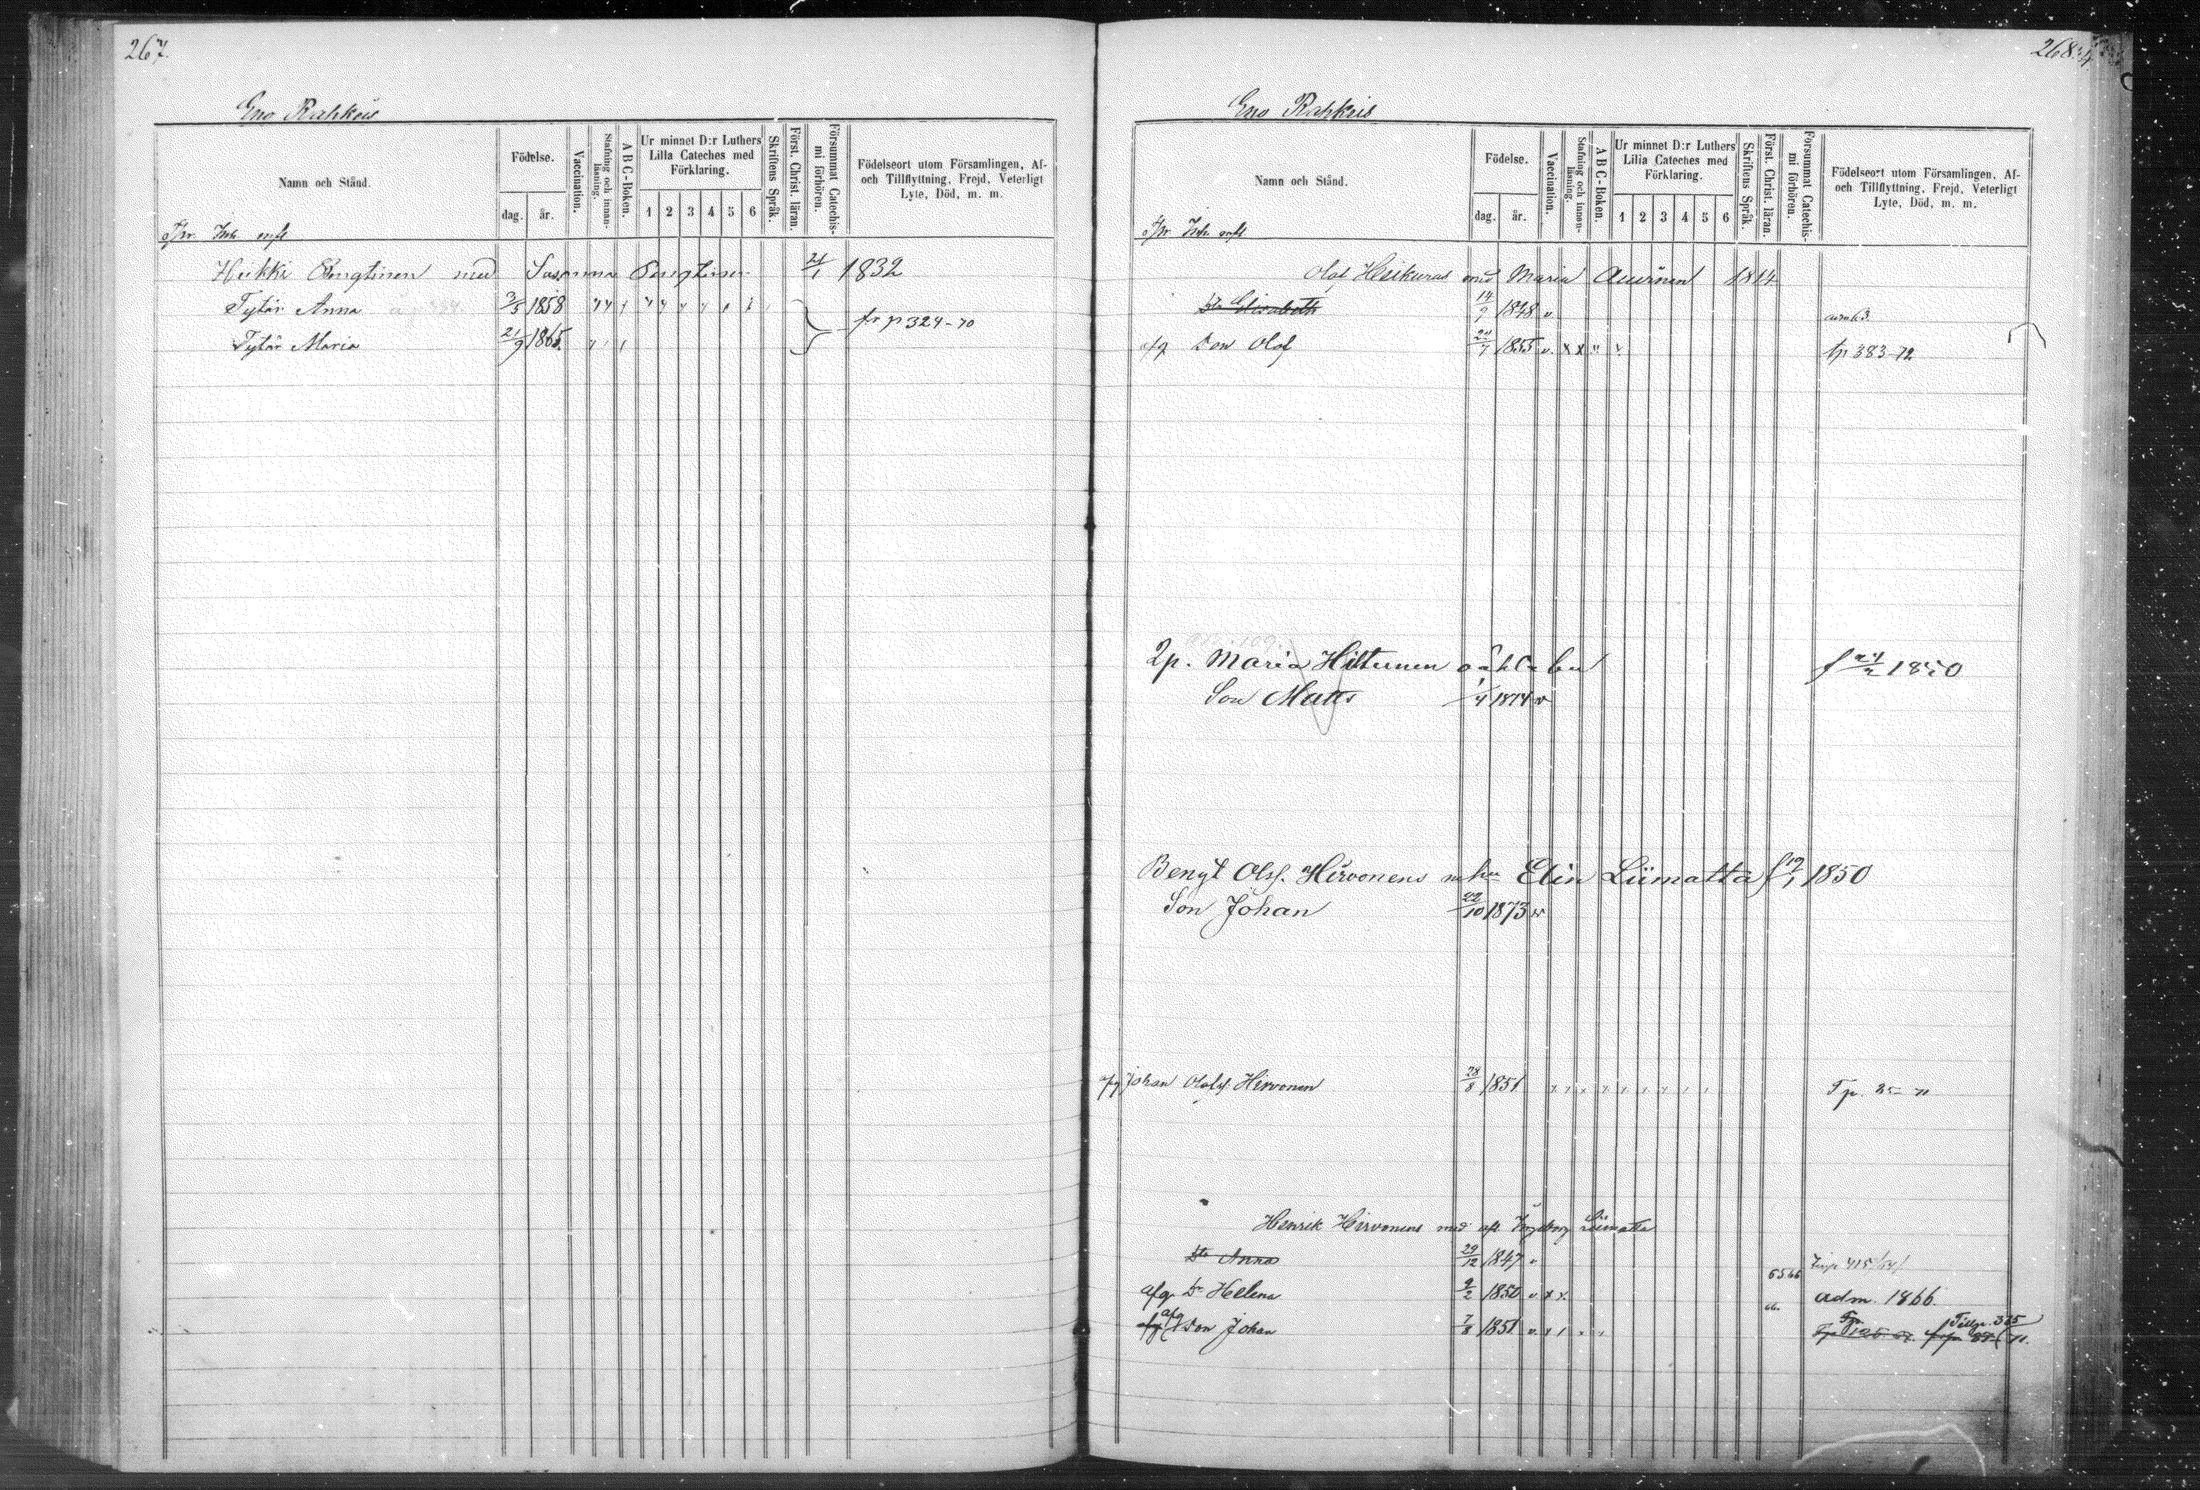 267.
Eno Rahkeis
Namn och Stånd.
Födelse.
dag. år.
Vaccination.
Stafning och innan-läsning.
A B C-Boken.
Ur minnet D:r Luthers Lilla Cateches med Förklaring.
1 2 3 4 5 6
Skriftens Språk.
Först. Christ. läran.
Försummat Catechis-mi förhören.
Födelseort utom Församlingen, Af- och Tillflyttning, Frejd, Veterligt Lyte, Död, m. m.
Heikki Pengtinen med Susanna Pengtinen 1832
Tytär Anna 3/5 1858
fr p 324-70
Tytär Maria 21/9 1865
268
Eno Rahkeis
Namn och Stånd.
Födelse.
dag. år.
Vaccination.
Stafning och innan-läsning.
A B C-Boken.
Ur minnet D:r Luthers Lilla Cateches med Förklaring.
1 2 3 4 5 6
Skriftens Språk.
Först. Christ. läran.
Försummat Catechis-mi förhören.
Födelseort utom Församlingen, Af- och Tillflyttning, Frejd, Veterligt Lyte, Död, m. m.
Olof Heikuras med Maria 1814
Elisabeth 14/9 1848 v
Son Olof 24/7 1855 v.
tp 383-72
2p. Maria Hiltunen 1850
Son Matts 1/4 1874 v
Bengt Ols. Hirvonens m hu Elin Liimatta f 12/1 1850
Son Johan 22/10 1873 v
afg Johan Olofs. Hirvonen 28/8 1851
Tp. 25-71
Henrik Hirvonens med afl. Ingeborg Liimatta
Dtr Anna 29/12 1847 v
afg Dr Helena 9/2 1850 v x x
adm. 1866.
afg Son Johan 7/8 1851 v.